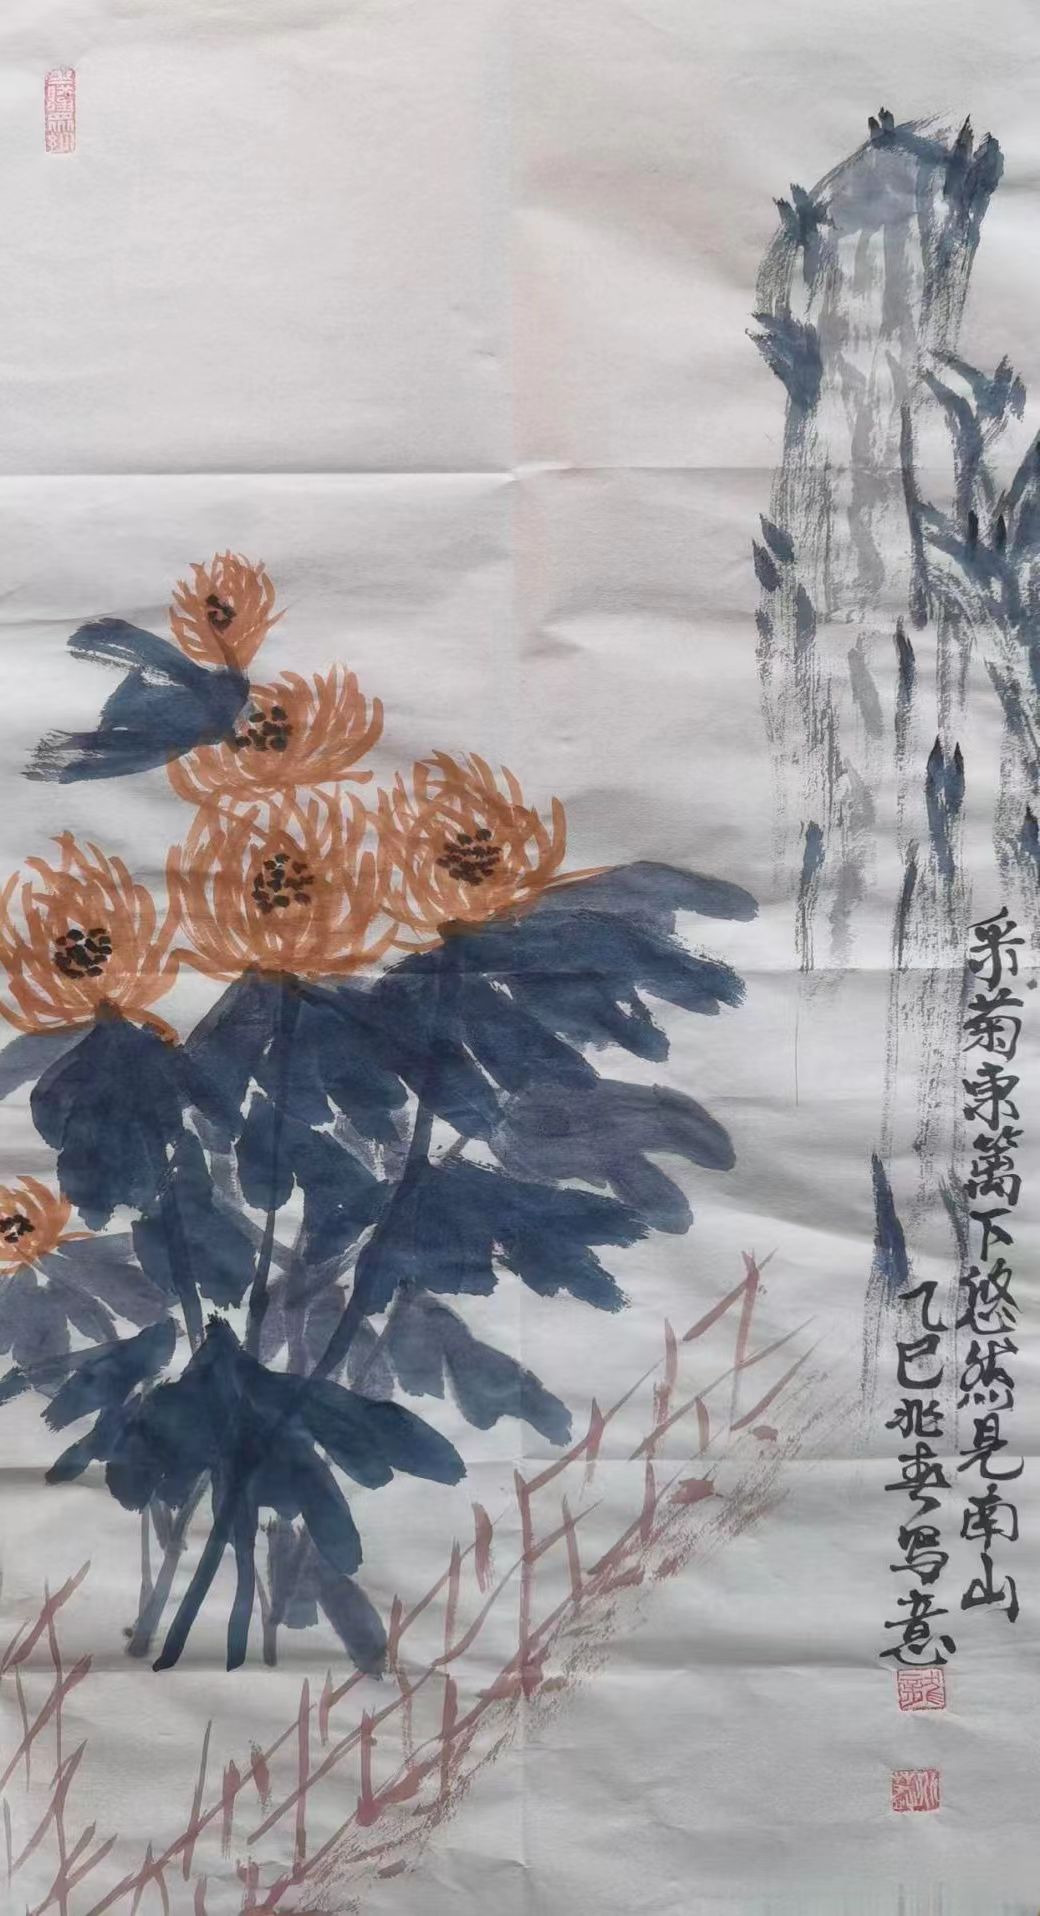 采菊東篱下悠然见南山
乙巳兆春写意